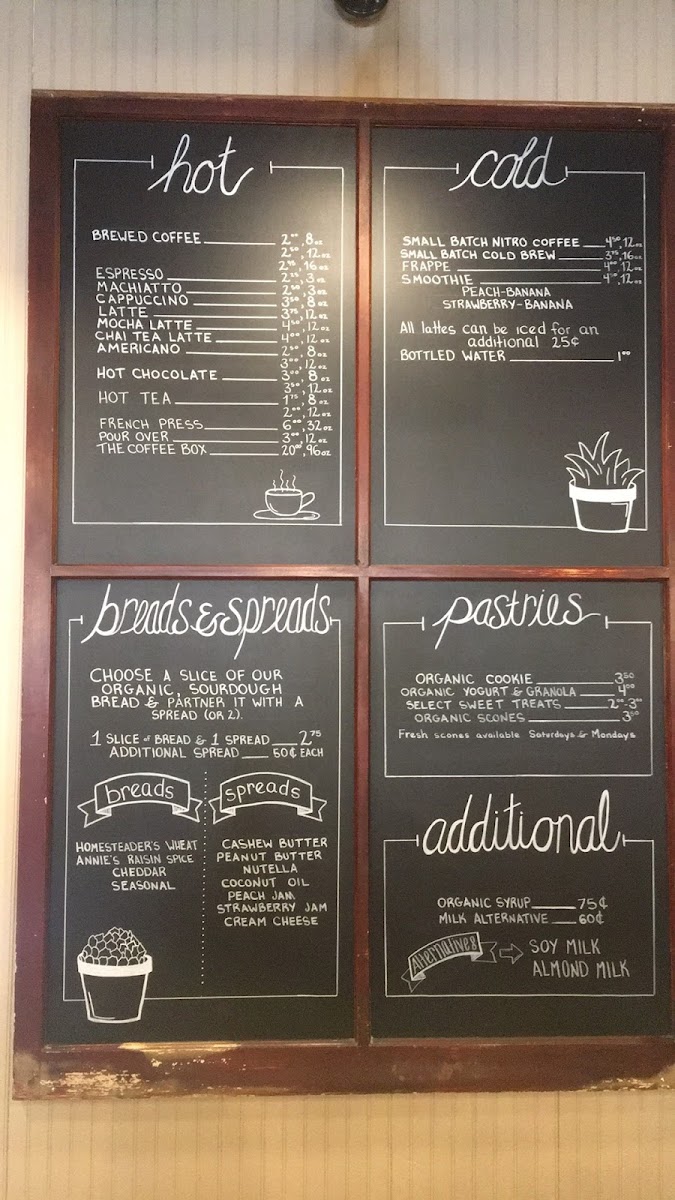 hot
BREWED COFFEE 2.00, 8oz
2.50, 12oz
2.95, 16oz
ESPRESSO 2.25, 3oz
MACHIATTO 2.50, 3oz
CAPPUCCINO 3.50, 8oz
LATTE 3.75, 12oz
MOCHA LATTE 4.50, 12oz
CHAI TEA LATTE 4.00, 12oz
AMERICANO 2.50, 8oz
3.00, 12oz
HOT CHOCOLATE 3.00, 8oz
3.50, 12oz
HOT TEA 1.75, 8oz
2.00, 12oz
FRENCH PRESS 6.00, 32oz
POUR OVER 3.00, 12oz
THE COFFEE BOX 20.00, 96oz
cold
SMALL BATCH NITRO COFFEE 4.50, 12oz
SMALL BATCH COLD BREW 3.75, 16oz
FRAPPE 4.00, 12oz
SMOOTHIE 12oz
PEACH-BANANA
STRAWBERRY-BANANA
All lattes can be iced for an
additional 25¢
BOTTLED WATER 1.00
breads & spreads
CHOOSE A SLICE OF OUR
ORGANIC, SOURDOUGH
BREAD & PARTNER IT WITH A
SPREAD (OR 2).
1 SLICE of BREAD & 1 SPREAD 2.75
ADDITIONAL SPREAD 60¢ EACH
breads
HOMESTEADER'S WHEAT
ANNIE'S RAISIN SPICE
CHEDDAR
SEASONAL
spreads
CASHEW BUTTER
PEANUT BUTTER
NUTELLA
COCONUT OIL
PEACH JAM
STRAWBERRY JAM
CREAM CHEESE
pastries
ORGANIC COOKIE 3.50
ORGANIC YOGURT & GRANOLA 4.00
SELECT SWEET TREATS 2.00-3.00
ORGANIC SCONES 3.50
Fresh scones available Saturdays & Mondays
additional
ORGANIC SYRUP 75¢
MILK ALTERNATIVE 60¢
Alternatives
SOY MILK
ALMOND MILK